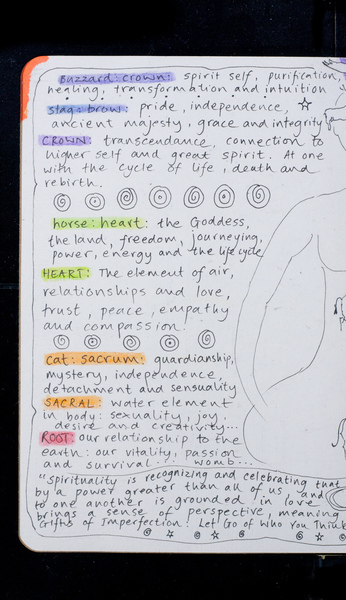 Buzzard: crown: spirit self, purification,
healing, transformation and intuition
stag: brow: pride, independence,
ancient majesty, grace and integrity
CROWN: transcendance, connection to
higher self and great spirit. At one
with the cycle of life, death and
rebirth.
horse: heart: the Goddess,
the land, freedom, journeying,
power, energy and the life cycle
HEART: The element of air,
relationships and love,
trust, peace, empathy
and compassion.
cat: sacrum: guardianship,
mystery, independence,
detachment and sensuality
SACRAL: water element
in body: sexuality, joy,
desire and creativity...
ROOT: our relationship to the
earth: our vitality, passion
and survival... womb...
"Spirituality is recognizing and celebrating that
by a power greater than all of us and
to one another is grounded in love
brings a sense of perspective, meaning
Gifts of Imperfection: Let Go of Who You Think